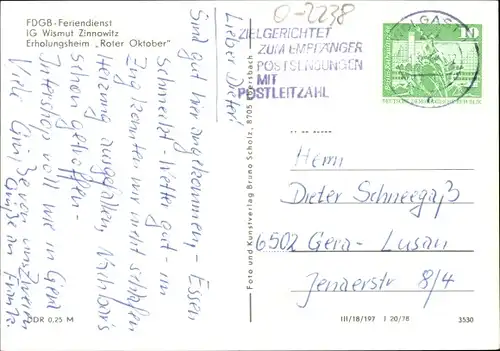 FDGB-Feriendienst
IG Wismut Zinnowitz
Erholungsheim „Roter Oktober"
Lieber Dieter!
Sind gut hier angekommen, - Essen
schmeckt - Wetter gut - im
Zug konnten wir nicht schlafen,
Heizung ausgefallen, Nachbar's
schon getroffen -
Intershop voll wie in Gera
Viele Grüße
Grüße an
DDR 0,25 M
Foto und Kunstverlag Bruno Scholz, 8705 Ebersbach
O-2238
ZIELGERICHTET
ZUM EMPFÄNGER
POSTSENDUNGEN
MIT
POSTLEITZAHL
WOLGAST
10
DEUTSCHE DEMOKRATISCHE REPUBLIK
Herrn
Dieter Schneegaß
6502 Gera-Lusan
Jenaerstr 8/4
III/18/197 I 20/78 3530